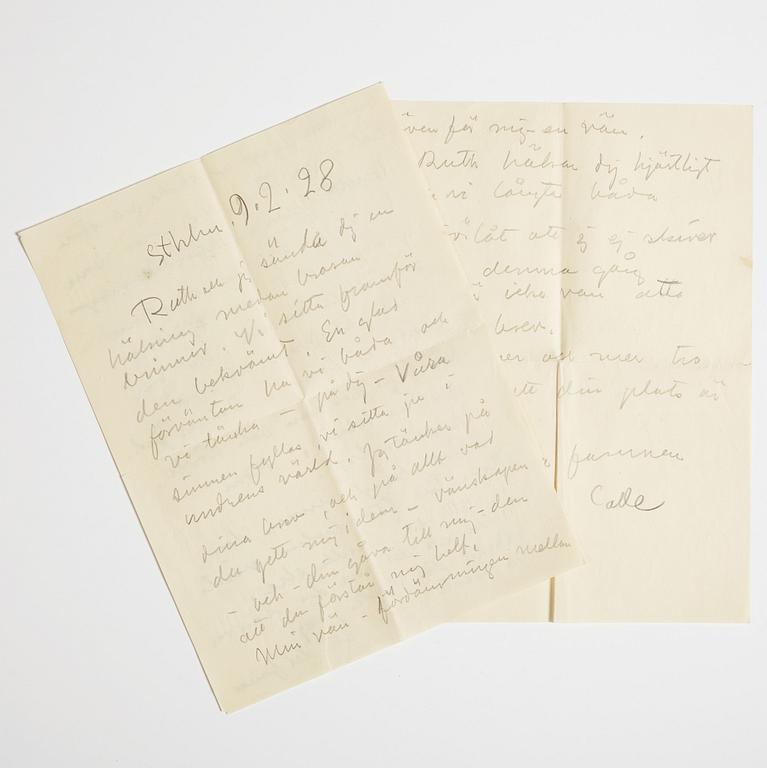 Sthlm, 9.2.28
Ruth och jag sända dig en
hälsning medan brasan
brinner. Vi sitta framför
den bekvämt. En glad
förväntan ha vi båda och
vi tänka – på dig – Våra
sinnen fyllas, vi sitta ju i
undrens värld. Jag tänker på
dina brev, och på allt vad
du gett mig i dem – vänskapen
– och – din gåva till mig – den
att du förstår mig helt.
Min vän – mellan
även för mig – en vän.
Ruth hälsar dig hjärtligt
vi längta båda
förlåt att jag ej skriver
denna gång
icke van att
brev.
mer och mer tro
att din plats är
famnen
Calle